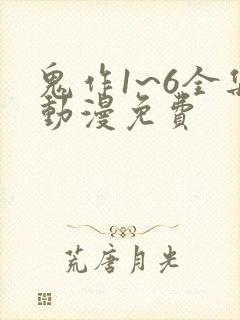 鬼作1~6全集
動漫免費
荒唐月光